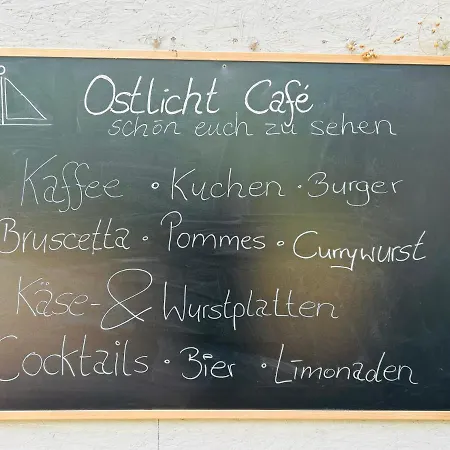 Ostlicht Café
schön euch zu sehen
Kaffee • Kuchen • Burger
Bruscetta • Pommes • Currywurst
Käse- & Wurstplatten
Cocktails • Bier • Limonaden